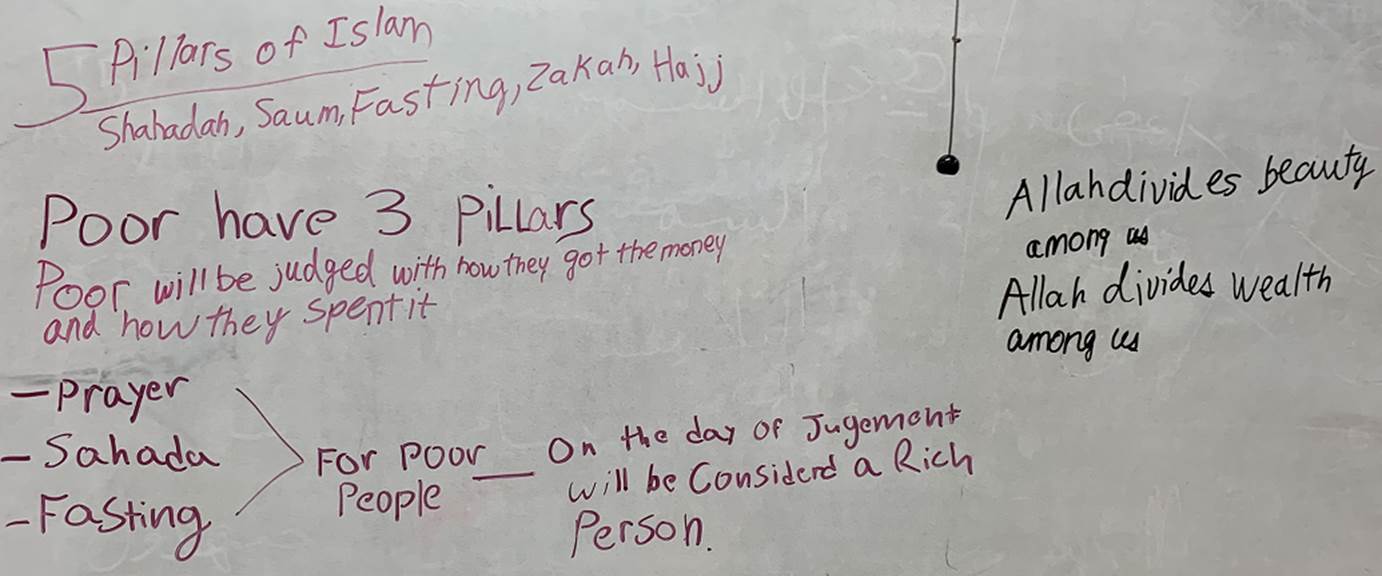 5 Pillars of Islam
Shahadah, Saum, Fasting, Zakah, Hajj
Poor have 3 PiLLars
Poor will be judged with how they got the money
and how they spent it
- Prayer
- Sahada
- Fasting
For Poor
People
— On the day of Jugement
will be Considerd a Rich
Person.
Allah divides beauty
among us
Allah divides wealth
among us